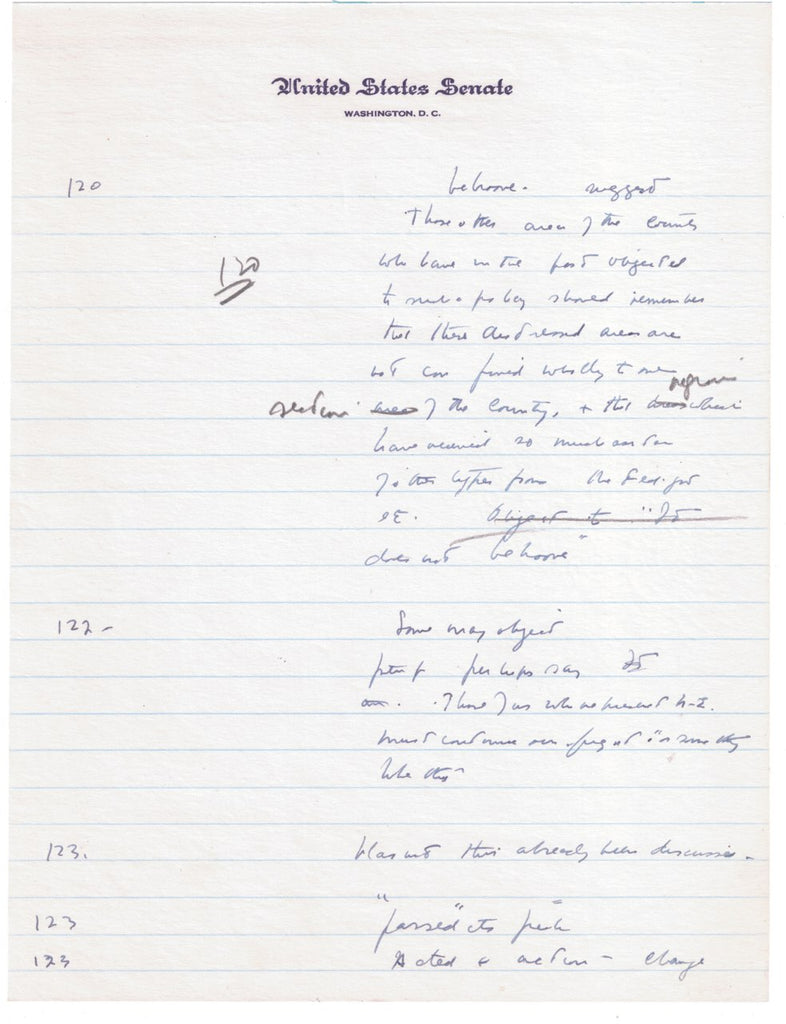 United States Senate
WASHINGTON, D. C.
120 behoove - suggest
Those other areas of the country
120
who have in the past objected
to such a policy should remember
that these distressed areas are
not confined wholly to one
regions
section area of the country, & that areas which
have received so much
of other types from the Fed. govt
does not behoove"
122 - Some may object
perhaps say
Those of us who represent N-E.
must continue our fight "or something
like this"
123. Has not this already been discussed -
123 "passed" its peak
123 Acted & action - change